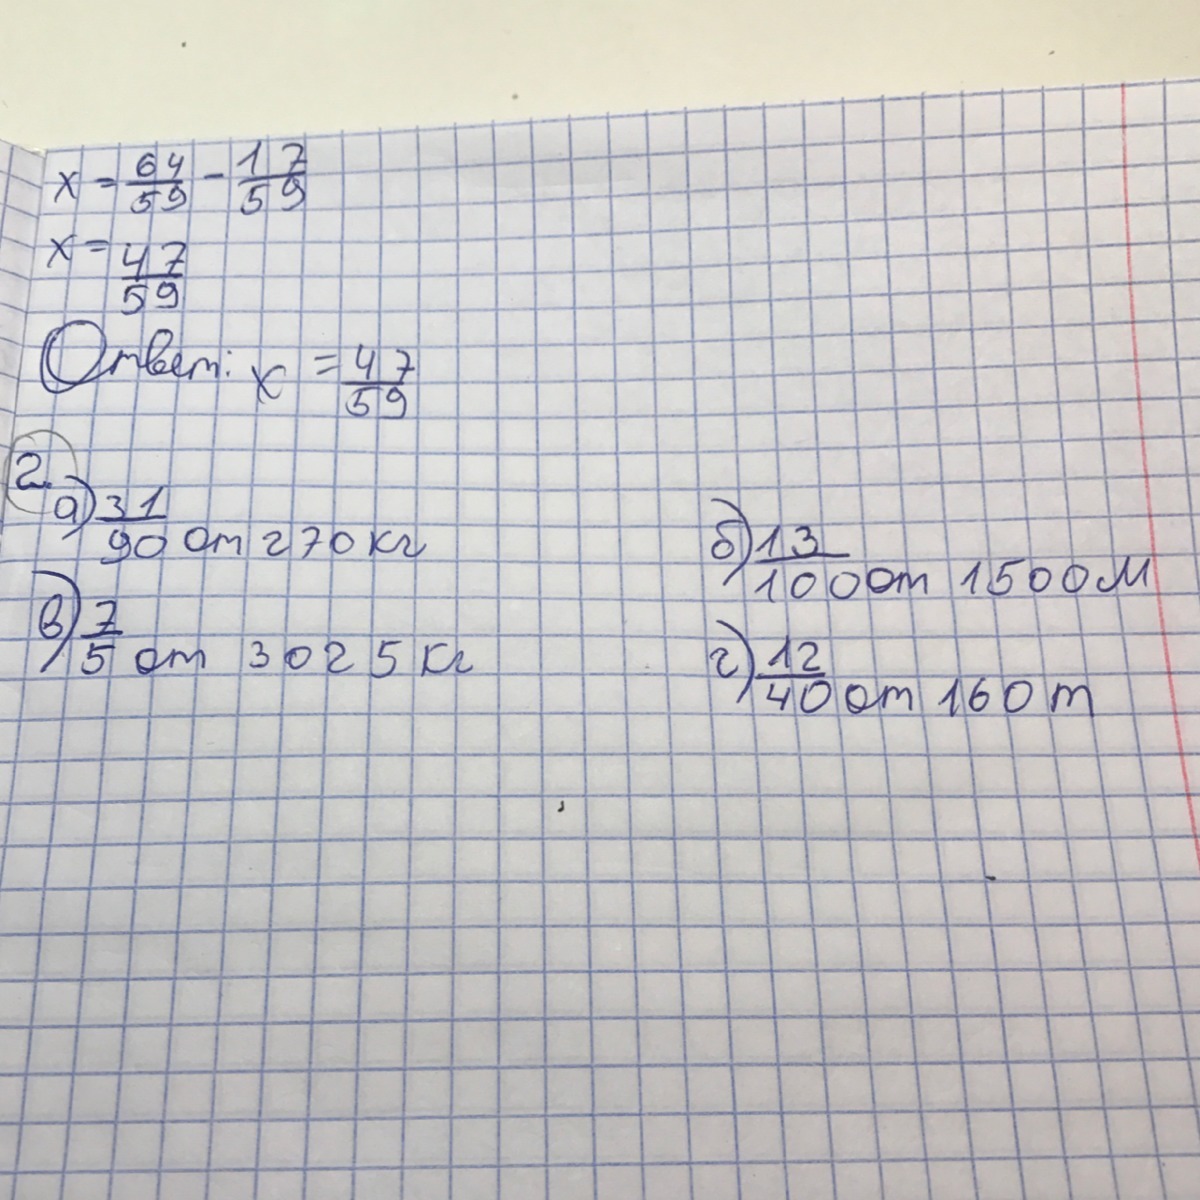 x = 64/59 - 17/59
x = 47/59
Ответ: x = 47/59
2.
а) 31/90 от 270 кг
б) 13/100 от 1500 м
в) 7/5 от 3025 кг
г) 12/40 от 160 т